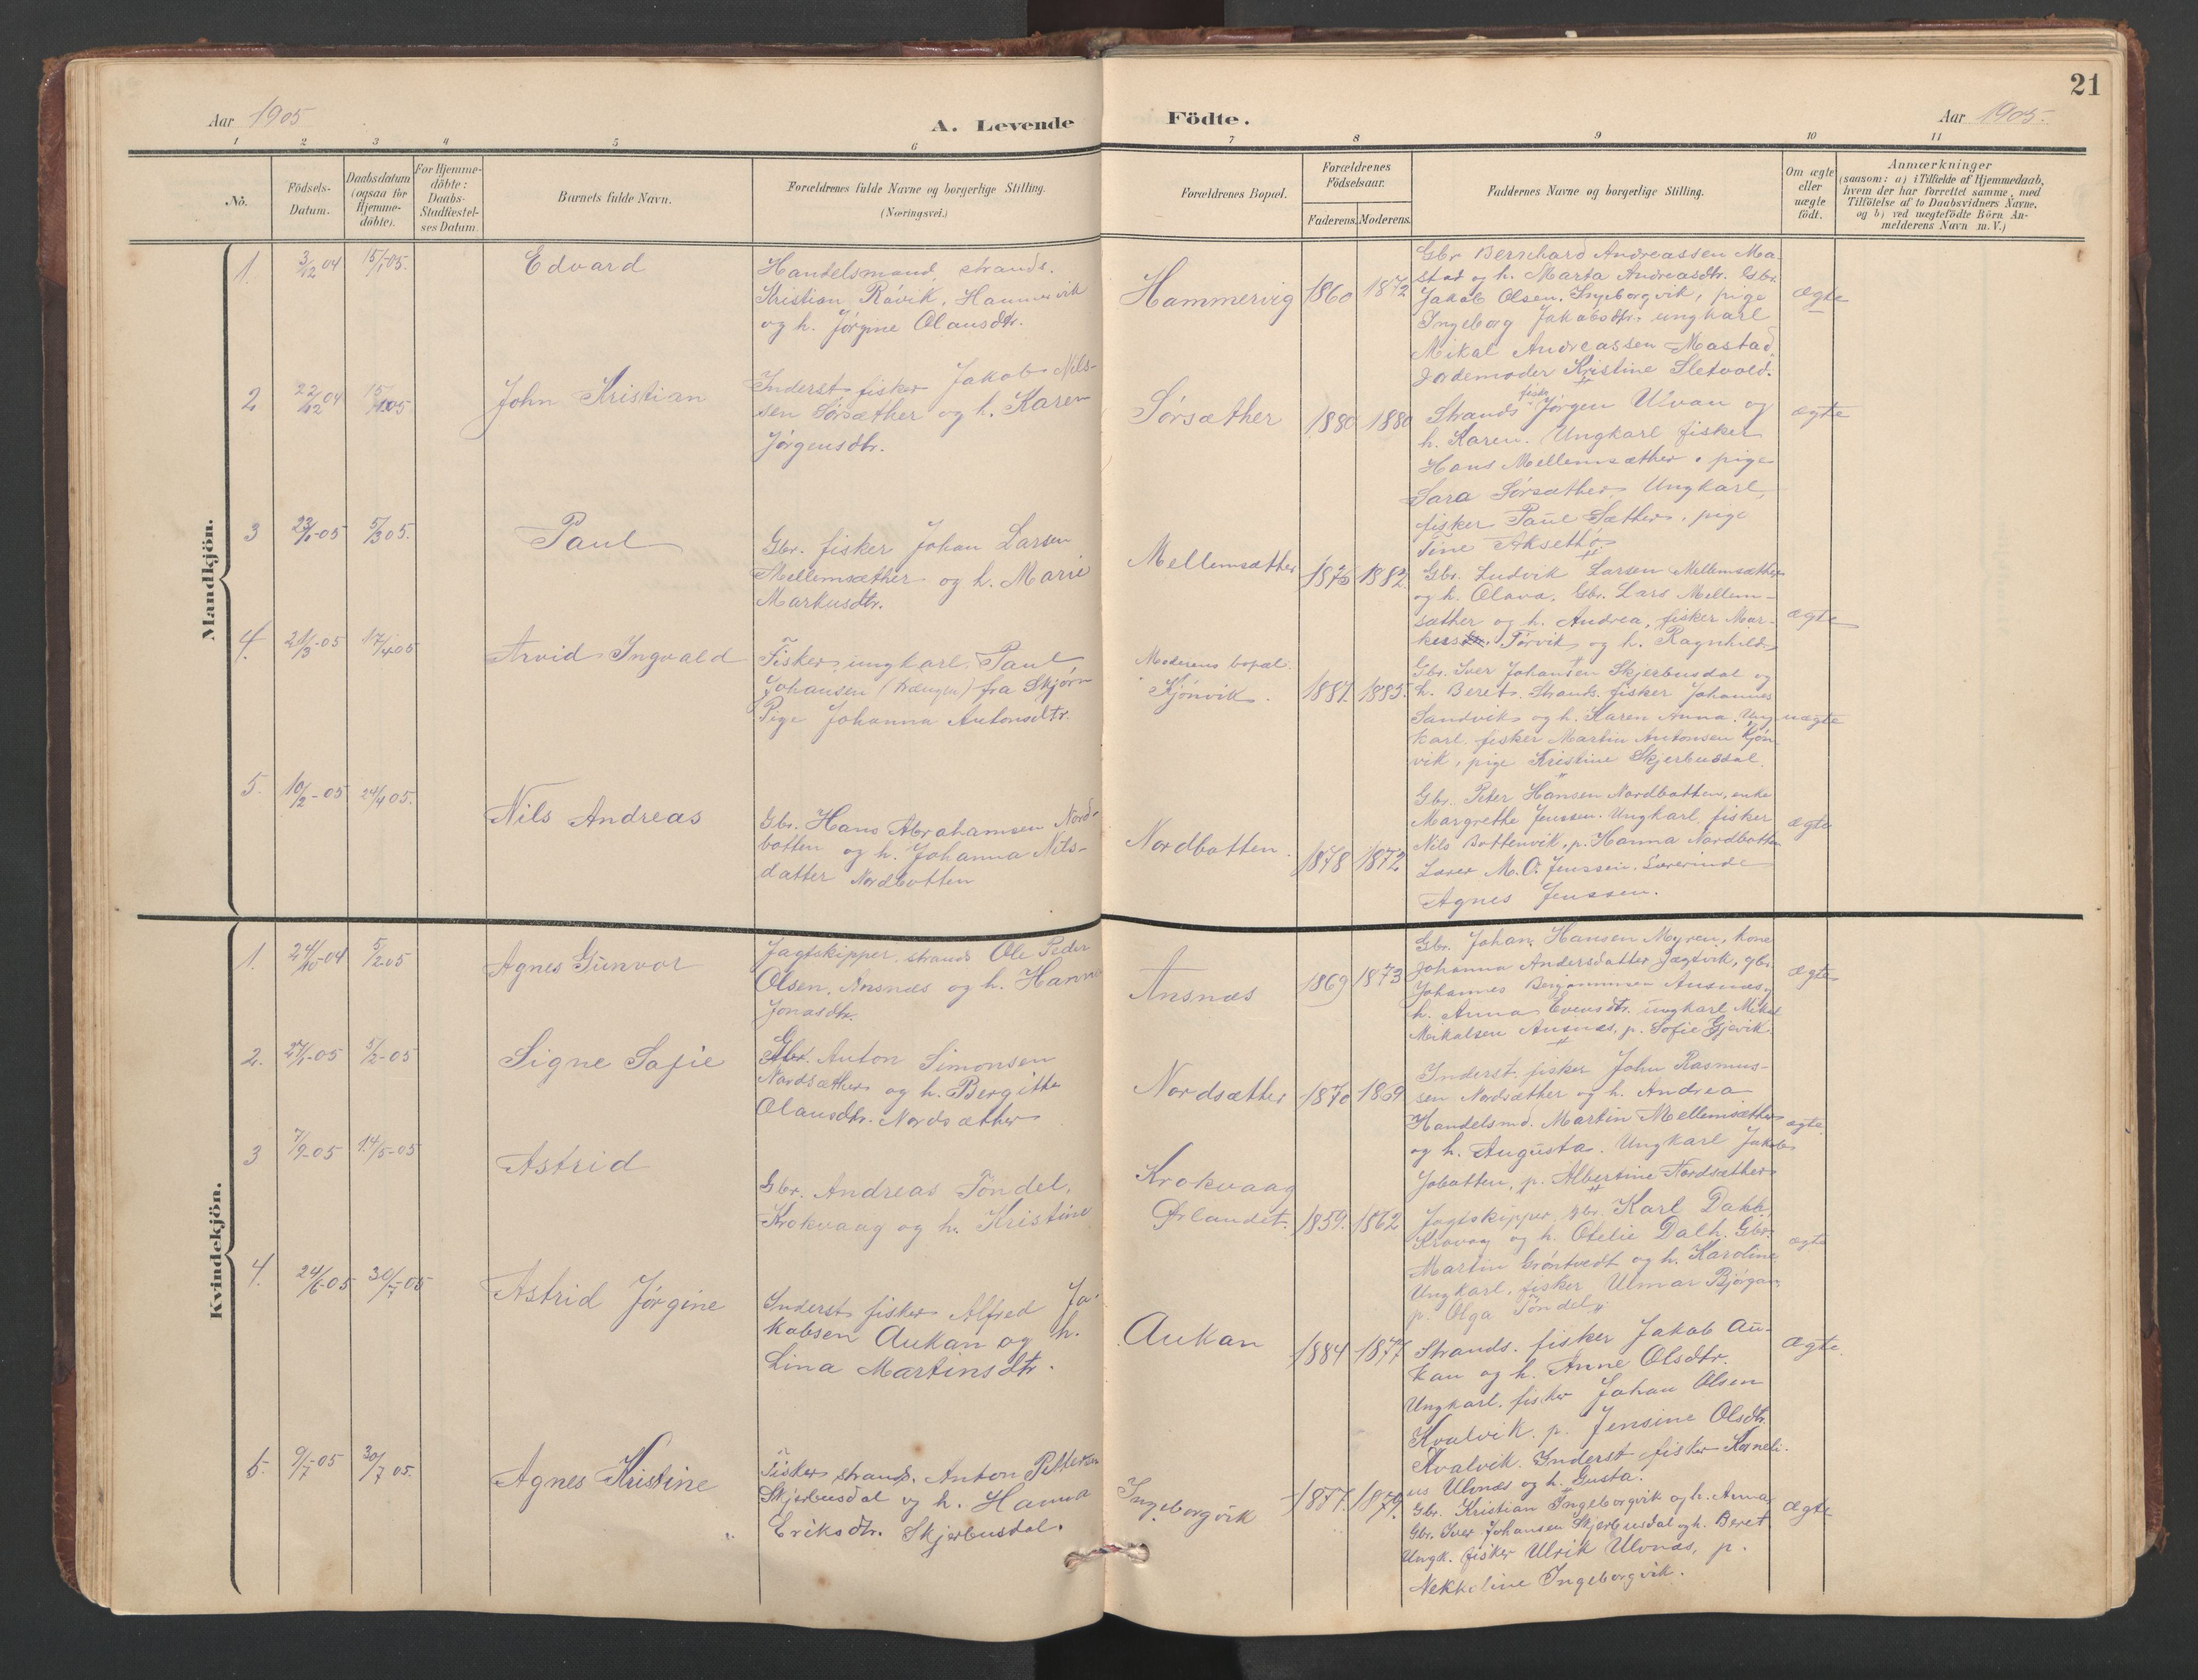 21
Aar 1905
A. Levende Födte.
Aar 1905.
1 2 3 4 5 6 7 8 9 10 11
No.
Födsels-
Datum.
Daabsdatum
(ogsaa for
Hjemme-
döbte).
For Hjemme-
döbte:
Daabs-
Stadfæstel-
ses Datum.
Barnets fulde Navn.
Forældrenes fulde Navne og borgerlige Stilling.
(Næringsvei.)
Forældrenes Bopæl.
Forældrenes
Födselsaar.
Faderens. Moderens.
Faddernes Navne og borgerlige Stilling.
Om ægte
eller
uægte
födt.
Anmærkninger
(saasom: a) i Tilfælde af Hjemmedaab,
hvem der har forrettet samme, med
Tilföielse af to Daabsvidners Navne,
og b) ved uægtefödte Börn An-
melderens Navn m. V.)
Mandkjön.
1. 3/12 04 15/1 05. Edvard
Handelsmand, strands.
Kristian Råvik, Hammervik
og h. Jørgine Olausdtr.
Hammervig 1860 1872
Gbr Bernhard Andreassen Ma-
stad og h. Marta Andreasdtr. Gbr.
Jakob Olsen, Ingeborgvik, pige
Ingeborg Jakobsdtr. ungkarl
Mikal Andreassen Mastad,
Jordemoder Kristine Sletvold.
ægte
2 22/12 04 15/1 05 John Kristian
Inderst, fisker Jakob Nils-
sen Sørsæther og h. Karen
Jørgensdtr.
Sørsæther 1880 1880
fisker
Strands Jørgen Ulvan og
h. Karen. Ungkarl fisker
Hans Mellemsæther, pige
Sara Sørsæther, Ungkarl,
fisker Paul Sæther, pige
Tine Aksethø
ægte
3 23/1-05 5/3 05. Paul
Gbr. fisker Johan Larsen
Mellemsæther og h. Marie
Markusdtr.
Mellemsæther 1876 1882.
Gbr. Ludvik Larsen Mellemsæther
og h. Olava. Gbr. Lars Mellem-
sæther og h. Andrea, fisker Mar-
kus Tørvik og h. Ragnhild
ægte
4. 21/3-05 17/4 05 Arvid Ingvald
Fisker, ungkarl Paul
Johansen (Brængen) fra Skjørn
Pige Johanna Antonsdtr.
Moderens bopæl.
Kjønvik. 1887. 1885.
Gbr. Iver Johansen Skjerbusdal og
h. Beret. Strands. fisker Johannes
Sandvik og h. Karen Anna. Ung-
karl. fisker Martin Antonsen Kjøn-
vik, pige Kristine Skjerbusdal.
uægte
5. 10/2-05 24/4 05. Nils Andreas
Gbr. Hans Abrahamsen Nord-
botten og h. Johanna Nils-
datter Nordbotten
Nordbotten. 1878 1872
Gbr. Peter Hansen Nordbotten, enke
Margrethe Jenssen. Ungkarl, fisker
Nils Bottenvik, p. Hanna Nordbotten
Lærer M. O. Jenssen. Lærerinde
Agnes Jenssen.
ægte
Kvindekjön.
1. 24/10-04 5/2-05 Agnes Gunvor
Jagtskipper, strands Ole Peder
Olsen, Ansnæs og h. Hanna
Jonasdtr.
Ansnæs 1869 1873
Gbr. Johan Hansen Myren, kone
Johanna Andersdatter Jægtvik, gbr.
Johannes Benjaminsen Ansnæs og
h. Anna Evensdtr. ungkarl Mikal
Mikalsen Ansnæs, p. Sofie Gjevik.
ægte
2. 27/1-05 5/2-05 Signe Sofie
Gbr. Anton Simonsen
Nordsæther og h. Bergitte
Olausdtr. Nordsæther
Nordsætter 1870 1869
Inderst. fisker John Rasmus-
sen Nordsæther og h. Andrea
Handelsmd. Martin Mellemsæther
og h. Augusta. Ungkarl Jakob
Jobotten, p. Albertine Nordsæther
ægte
3 7/2-05 14/5-05 Astrid
Gbr. Andreas Tøndel,
Krokvaag og h. Kristine
Krokvaag
Ørlandet. 1859. 1862
Jagtskipper, gbr. Karl Dahl,
Kravag og h. Otelie Dalh. Gbr.
Martin Grøntvedt og h. Karoline
Ungkarl, fisker Ulmar Bjørgan,
p. Olga Tøndel
ægte
4. 24/6-05 30/7-05 Astrid Jørgine
Inderst fisker Alfred Ja-
kobsen Aukan og h.
Lina Martinsdtr.
Aukan 1884 1877
Strands. fisker Jakob Au-
kan og h. Anne Olsdtr.
Ungkarl. fisker Johan Olsen
Kvalvik. p. Jensine Olsdtr.
Kvalvik. Inderst fisker Korneli-
us Ulvnæs og h. Gusta.
ægte.
5. 9/7-05 30/7 05. Agnes Kristine
Fisker, strands. Anton Petersen
Skjerbusdal og h. Hanna
Eriksdtr. Skjerbusdal.
Ingeborgvik 1877. 1879.
Gbr. Kristian Ingeborgvik og h. Anna
Gbr. Iver Johansen Skjerbusdal og h. Beret
Ungk. fisker Ulrik Ulvnæs, p.
Nekkoline Ingeborgvik.
ægte